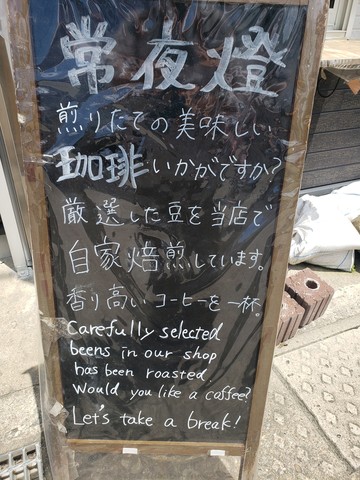 常夜燈
煎りたての美味しい
珈琲いかがですか?
厳選した豆を当店で
自家焙煎しています。
香り高いコーヒーを一杯。
Carefully selected
beens in our shop
has been roasted.
Would you like a caffee?
Let's take a break!